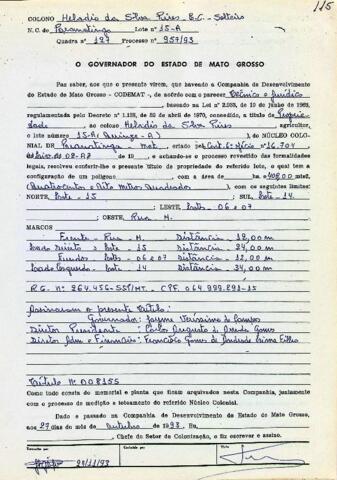 115
COLONO Heladio da Silva Pires E.C. Solteiro
N. C. de Paranatinga Lote nº 15-A
Quadra nº 127 Processo nº 957/93
O GOVERNADOR DO ESTADO DE MATO GROSSO
Faz saber, aos que o presente virem, que havendo a Companhia de Desenvolvimento
do Estado de Mato Grosso - CODEMAT -, de acordo com o parecer Técnico e Jurídico
, baseado na Lei nº 2.033, de 19 de junho de 1963,
regulamentada pelo Decreto nº 1.138, de 29 de abril de 1970, concedido, a título de Proprie
dade ao colono Heladio da Silva Pires, agricultor,
o lote número 15-A (Quinze-A) do NÚCLEO COLO-
NIAL DE Paranatinga - MT. criado
de 19, e achando-se o processo revestido das formalidades
legais, resolveu conferir-lhe o presente título de propriedade do referido lote, o qual tem a
configuração de um polígono com a área de 408,00 mts2
Quatrocentos e Oito Metros Quadrados com os seguintes limites:
NORTE, Lote - 15 ; SUL, Lote - 14
; LESTE, Lotes - 06 e 07
; OESTE, Rua - H.
MARCOS
Frente - Rua - H. Distância - 12,00 m
Lado Direito - Lote - 15 Distância - 34,00 m
Fundos - Lotes - 06 e 07 Distância - 12,00 m
Lado Esquerdo - Lote - 14 Distância - 34,00 m
R.G. nº 264.456-SSP/MT. C.P.F. 064.999.891-15
Assinaram o presente título:
Governador: Jayme Veríssimo de Campos
Diretor Presidente: Carlos Augusto de Arruda Gomes
Diretor Adm e Financeiro: Francisco Gomes de Andrade Lima Filho
Título nº 008155
Como tudo consta do memorial e planta que ficam arquivados nesta Companhia, juntamente
com o processo de medição e loteamento do referido Núcleo Colonial.
Dado e passado na Companhia de Desenvolvimento do Estado de Mato Grosso,
aos 27 dias do mês de outubro de 1993. Eu,
, Chefe do Setor de Colonização, o fiz escrever e assino.
Executado por: Conferido por: Visto:
29/11/93